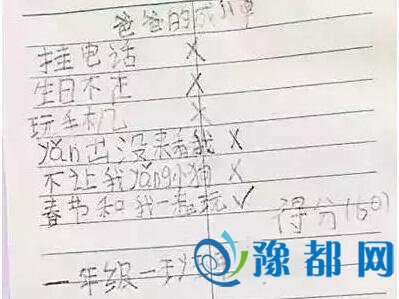 爸爸的成绩单
挂电话 ×
生日不在 ×
玩手机 ×
yǎn出没来看我 ×
不让我yǎng小狗 ×
春节和我一起玩 ✓
得分(60)
一年级一班
豫都网